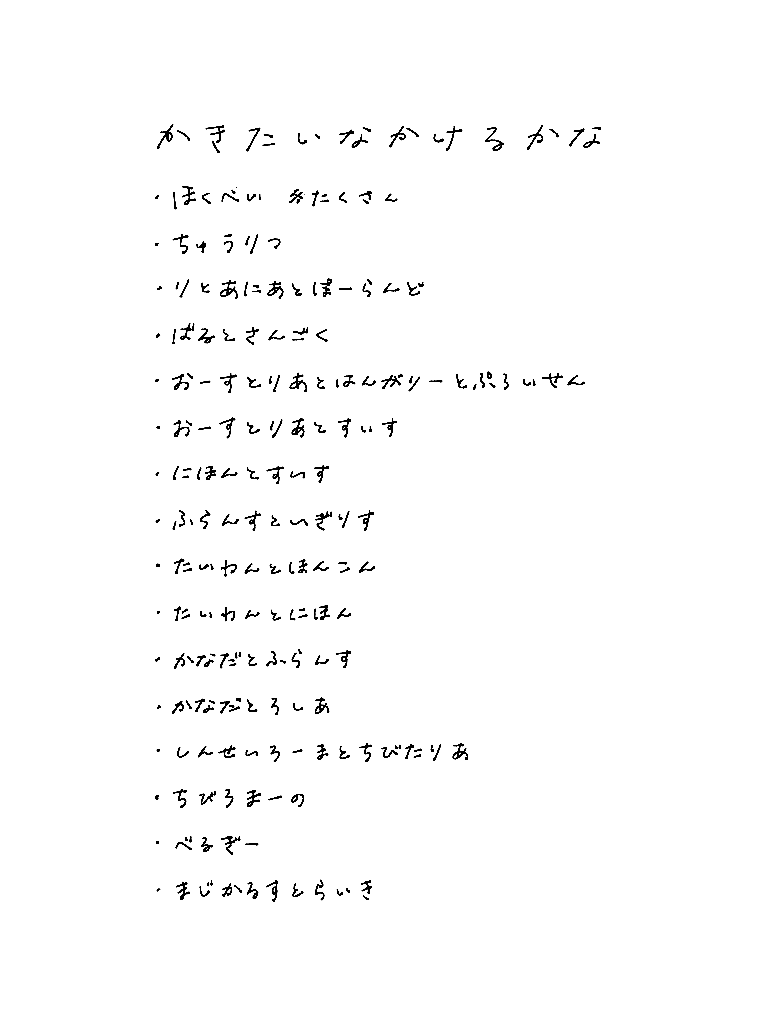 かきたいなかけるかな
・ほくべい きたくさん
・ちゅうりつ
・りとあにあとぽーらんど
・ばるとさんごく
・おーすとりあとはんがりーとぷろいせん
・おーすとりあとすいす
・にほんとすいす
・ふらんすといぎりす
・たいわんとほんこん
・たいわんとにほん
・かなだとふらんす
・かなだとろしあ
・しんせいろーまとちびたりあ
・ちびろまーの
・べるぎー
・まじかるすとらいき